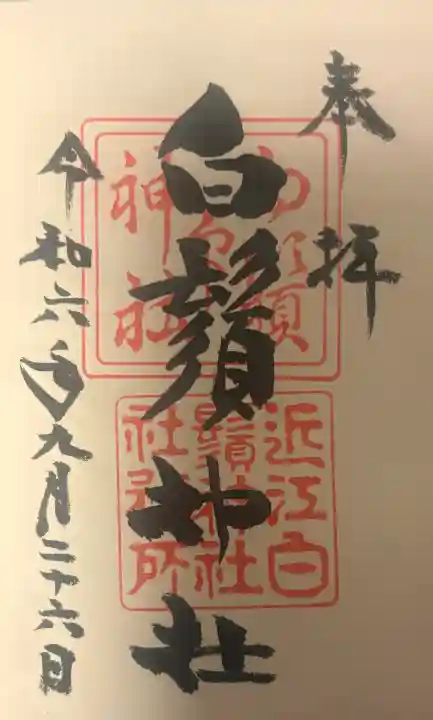 奉拝
白鬚神社
令和六年九月二十六日
白鬚
神社
近江白
鬚神社
社務所